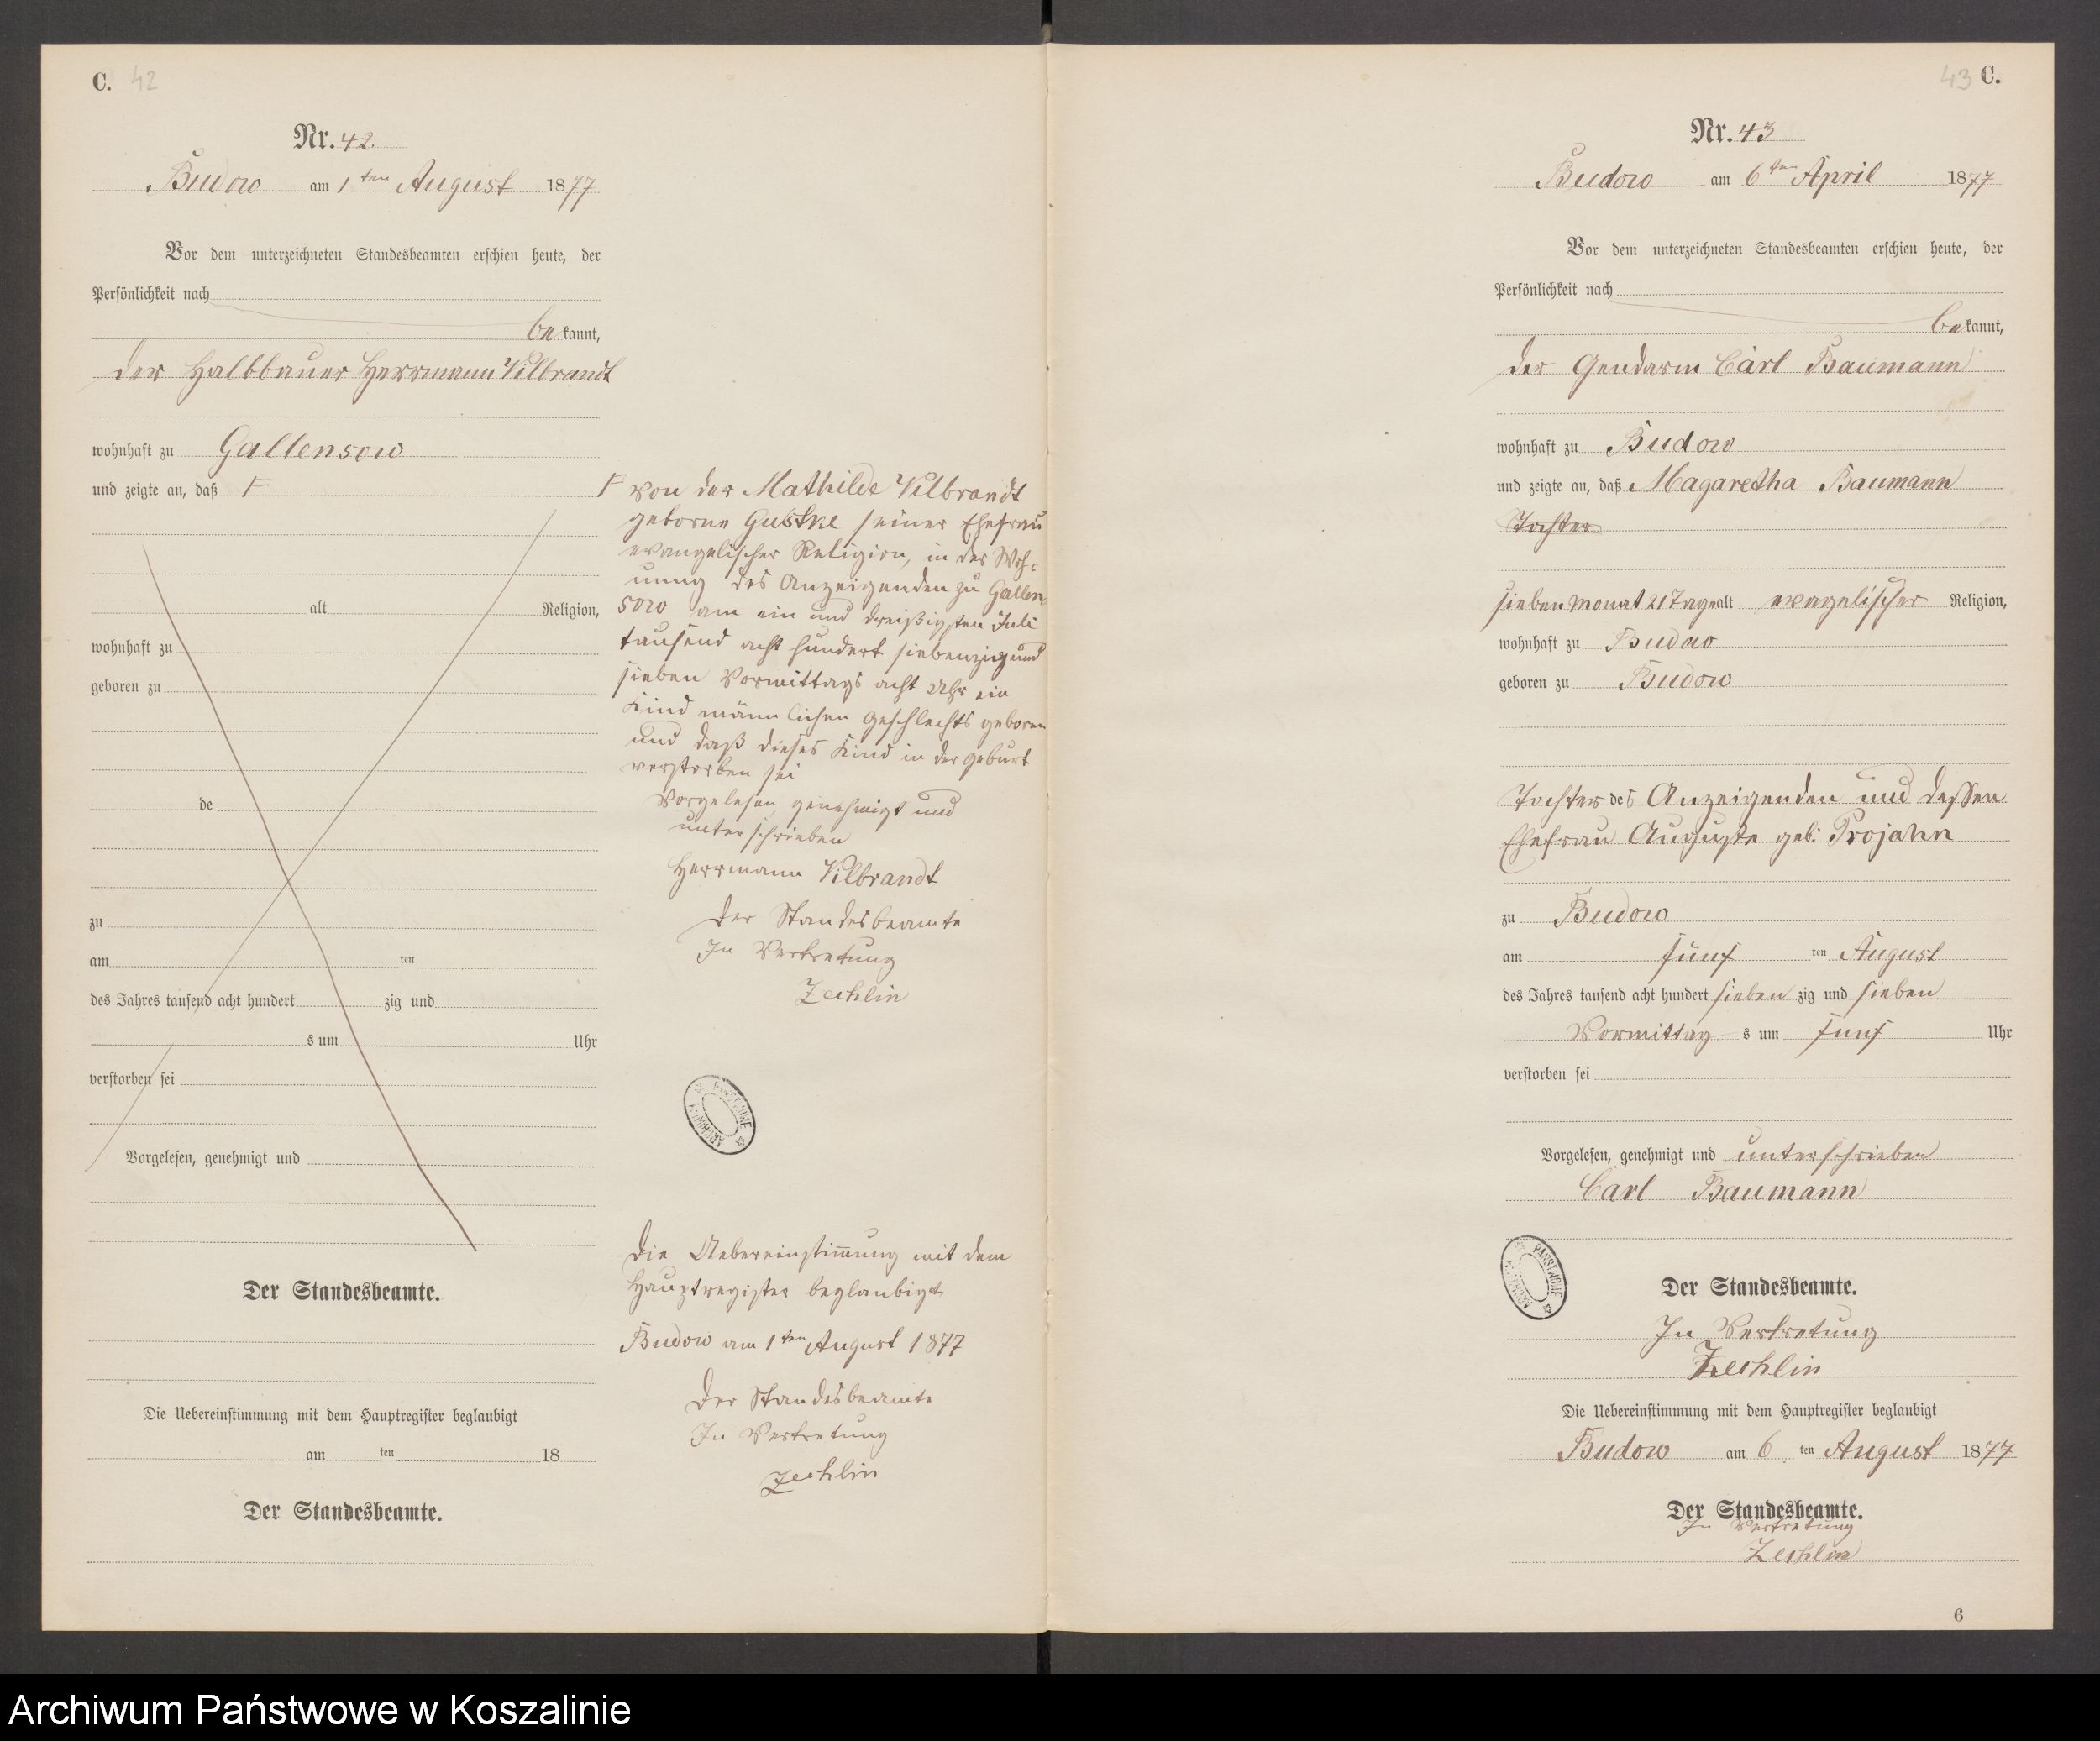 C. 42
Nr. 42.
Budow am 1ten August 1877
Vor dem unterzeichneten Standesbeamten erschien heute, der
Persönlichkeit nach
bekannt,
der Halbbauer Herrmann Vilbrandt
wohnhaft zu Gallensow
und zeigte an, daß F
alt Religion,
wohnhaft zu
geboren zu
de
zu
am ten
des Jahres tausend acht hundert zig und
s um Uhr
verstorben sei
Vorgelesen, genehmigt und
Der Standesbeamte.
Die Uebereinstimmung mit dem Hauptregister beglaubigt
am ten 18
Der Standesbeamte.
F von der Mathilde Vilbrandt
geborne Gustke seiner Ehefrau
evangelischer Religion, in der Woh-
nung des Anzeigenden zu Gallen-
sow am ein und dreißigsten Juli
tausend acht hundert siebenzig und
sieben Vormittags acht Uhr ein
Kind männlichen Geschlechts geboren
und daß dieses Kind in der Geburt
verstorben sei
Vorgelesen genehmigt und
unterschrieben
Herrmann Vilbrandt
Der Standesbeamte
In Vertretung
Zechlin
ARCHIWUM PAŃSTWOWE
Die Uebereinstimmung mit dem
Hauptregister beglaubigt
Budow am 1ten August 1877
Der Standesbeamte
In Vertretung
Zechlin
43 C.
Nr. 43
Budow am 6ten April 1877
Vor dem unterzeichneten Standesbeamten erschien heute, der
Persönlichkeit nach
bekannt,
der Gendarm Carl Baumann
wohnhaft zu Budow
und zeigte an, daß Magaretha Baumann
Tochter
sieben Monat 21 Tage alt evagelischer Religion,
wohnhaft zu Budow
geboren zu Budow
Tochter des Anzeigenden und dessen
Ehefrau Auguste geb: Projahn
zu Budow
am fünf ten August
des Jahres tausend acht hundert sieben zig und sieben
Vormittag s um fünf Uhr
verstorben sei
Vorgelesen, genehmigt und unterschrieben
Carl Baumann
ARCHIWUM PAŃSTWOWE
Der Standesbeamte.
In Vertretung
Zechlin
Die Uebereinstimmung mit dem Hauptregister beglaubigt
Budow am 6 ten August 1877
Der Standesbeamte.
In Vertretung
Zechlin
6
Archiwum Państwowe w Koszalinie